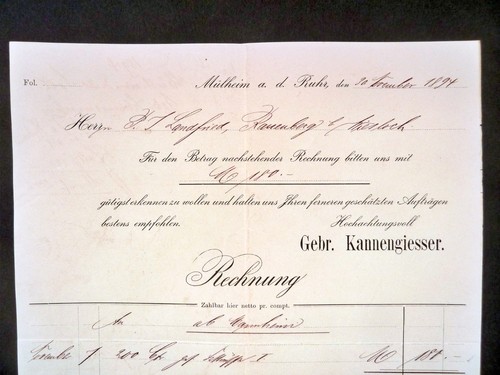 Fol.
Mülheim a. d. Ruhr, den 20 November 1894
Herrn P. J. Landfried, Rauenberg b/ Wiesloch.
Für den Betrag nachstehender Rechnung bitten uns mit
M 180.-
gütigst erkennen zu wollen und halten uns Ihren ferneren geschätzten Aufträgen
bestens empfohlen. Hochachtungsvoll
Gebr. Kannengiesser.
Rechnung
Zahlbar hier netto pr. compt.
An ab Mannheim
November 7 200 M 180.-